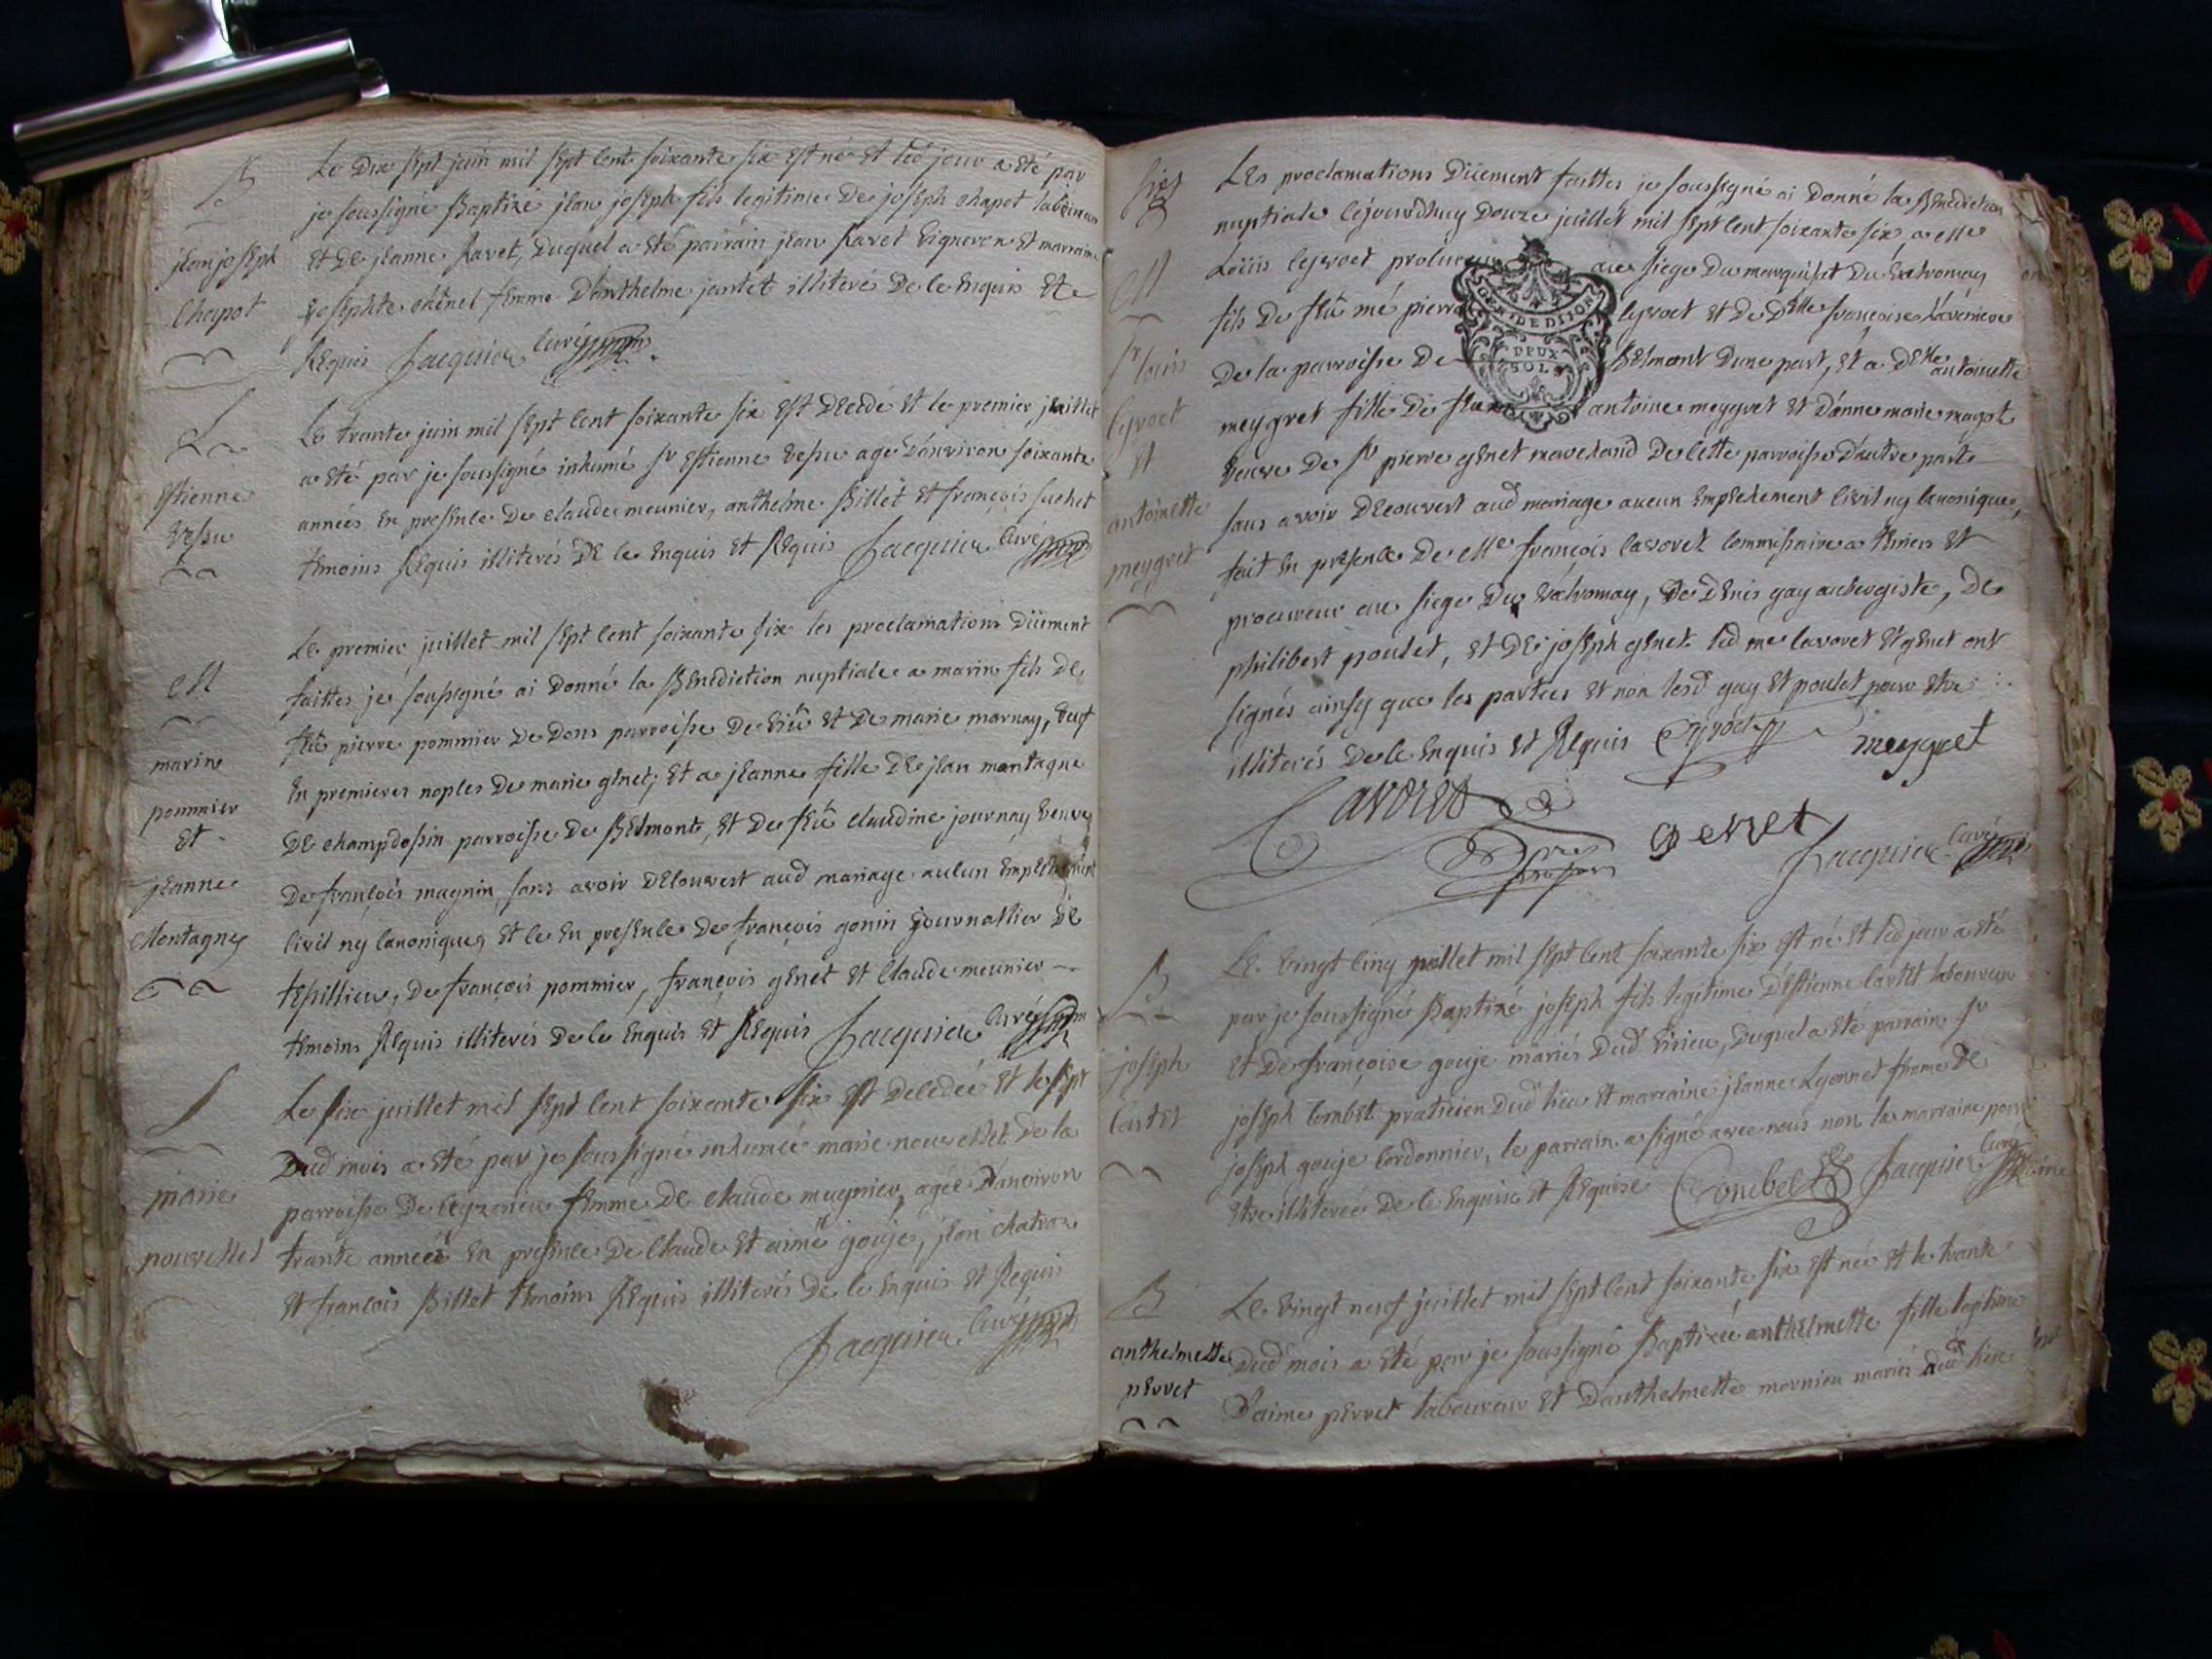 B
jean joseph
Chapot
Le Dix sept juin mil sept cent soixante six est né et led jour a été par
je soussigné Baptizé jean joseph fils legitime de joseph chapot laboureur
et de jeanne Ravet, duquel a été parrain jean Ravet vigneron et marraine
josephte chènel femme d'anthelme jantet illiterés de ce enquis et
Requis Jacquier curé
Estienne
vessu
Le trante juin mil sept cent soixante six est decedé et le premier juillet
a été par je soussigné inhumé sr Estienne vessu agé d'anviron soixante
années en presence de claude meunier, anthelme Billet et françois suchet
temoins Requis illiterés de ce enquis et Requis Jacquier curé
M
marin
pommier
et
jeanne
Montagne
Le premier juillet mil sept cent soixante six les proclamations düement
faittes je soussigné ai donné la Benediction nuptiale a marin fils de
feu pierre pommier de Dons parroisse de vieu et de marie marnay, veuf
en premieres noples de marie genet; et a jeanne fille de jean montagne
de champdossin parroisse de Belmont, et de feue claudine journay veuve
de françois magnin, sans avoir delouvert aud mariage aulun Empechement
civil ny canonique, et ce en presence de françois gonin journallier de
de françois pommier, françois genet et Claude meunier
temoins Requis illiterés de ce enquis et Requis Jacquier curé
S
marie
nouvellet
Le six juillet mil sept cent soixante six est decedée et le sept
dud mois a été par je soussigné inhumée marie nouvellet de la
parroisse de ceyzerieu femme de claude mugnier, agée d'anviron
trante années en presence de Claude et aimé gouje, jean chatron
et françois Billet temoins Requis illiterés de ce enquis et Requis
Jacquier curé
six
8
M
sr louis
cyvoct
et
antoinette
meygret
Les proclamations düement faittes je soussigné ai donné la Benediction
nuptiale cejourdhuy douze juillet mil sept cent soixante six a me
Loüis cyvoct procureur au siege du marquisat du valromay
fils de feu me pierre cyvoct et de delle françoise
de la parroisse de Belmont dune part, et a delle antoinette
meygret fille de feu antoine meygret et d'anne marie magot
veuve de sr pierre genet marchand de cette parroisse d'autre part
sans avoir decouvert aud mariage aucun empechement civil ny canonique,
fait en presence de me françois lavoret commissaire a terriers et
procureur au siege du valromay, de denis gay aubergiste, de
philibert poulet, et de joseph genet led me lavoret et genet ont
signés ainsy que les parties et non lesd gay et poulet pour etre
illiterés de ce enquis et Requis Cyvoct meygret
Lavoret genet
Jacquier curé
GEN. DE DIJON
DEUX
SOLS
B
joseph
cartet
Le vingt cinq juillet mil sept cent soixante six est né et led jour a été
par je soussigné Baptizé joseph fils legitime d'Estienne cartet laboureur
et de françoise gouje mariés dud virieu, duquel a été parrain sr
joseph Combet praticien dud lieu et marraine jeanne Lyonnet femme de
joseph gouje cordonnier, le parrain a signé avec nous non la marraine pour
etre illiterée de ce enquise et Requise Combet Jacquier curé
B
anthelmette
perret
Le vingt neuf juillet mil sept cent soixante six est née et le trante
dud mois a été par je soussigné Baptizée anthelmette fille legitime
d'aime perret laboureur et d'anthelmette marnieu mariés dud lieu